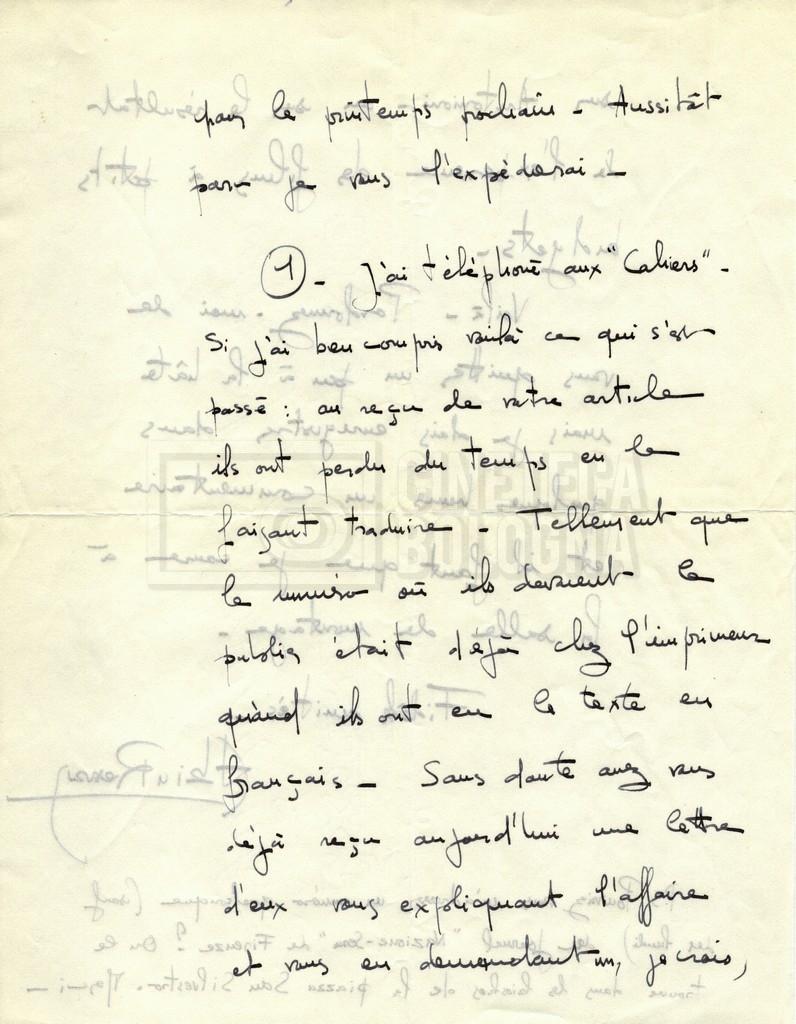 pour le printemps prochain - Aussitôt
paru je vous l'expédierai -
1 - J'ai téléphoné aux "Cahiers" -
Si j'ai bien compris voilà ce qui s'est
passé : au reçu de votre article
ils ont perdu du temps en le
faisant traduire - Tellement que
le numéro où ils devaient le
publier était déjà chez l'imprimeur
quand ils ont eu le texte en
français - Sans doute avez vous
déjà reçu aujourd'hui une lettre
d'eux vous expliquant l'affaire
et vous en demandant un, je crois,
CINETECA
BOLOGNA